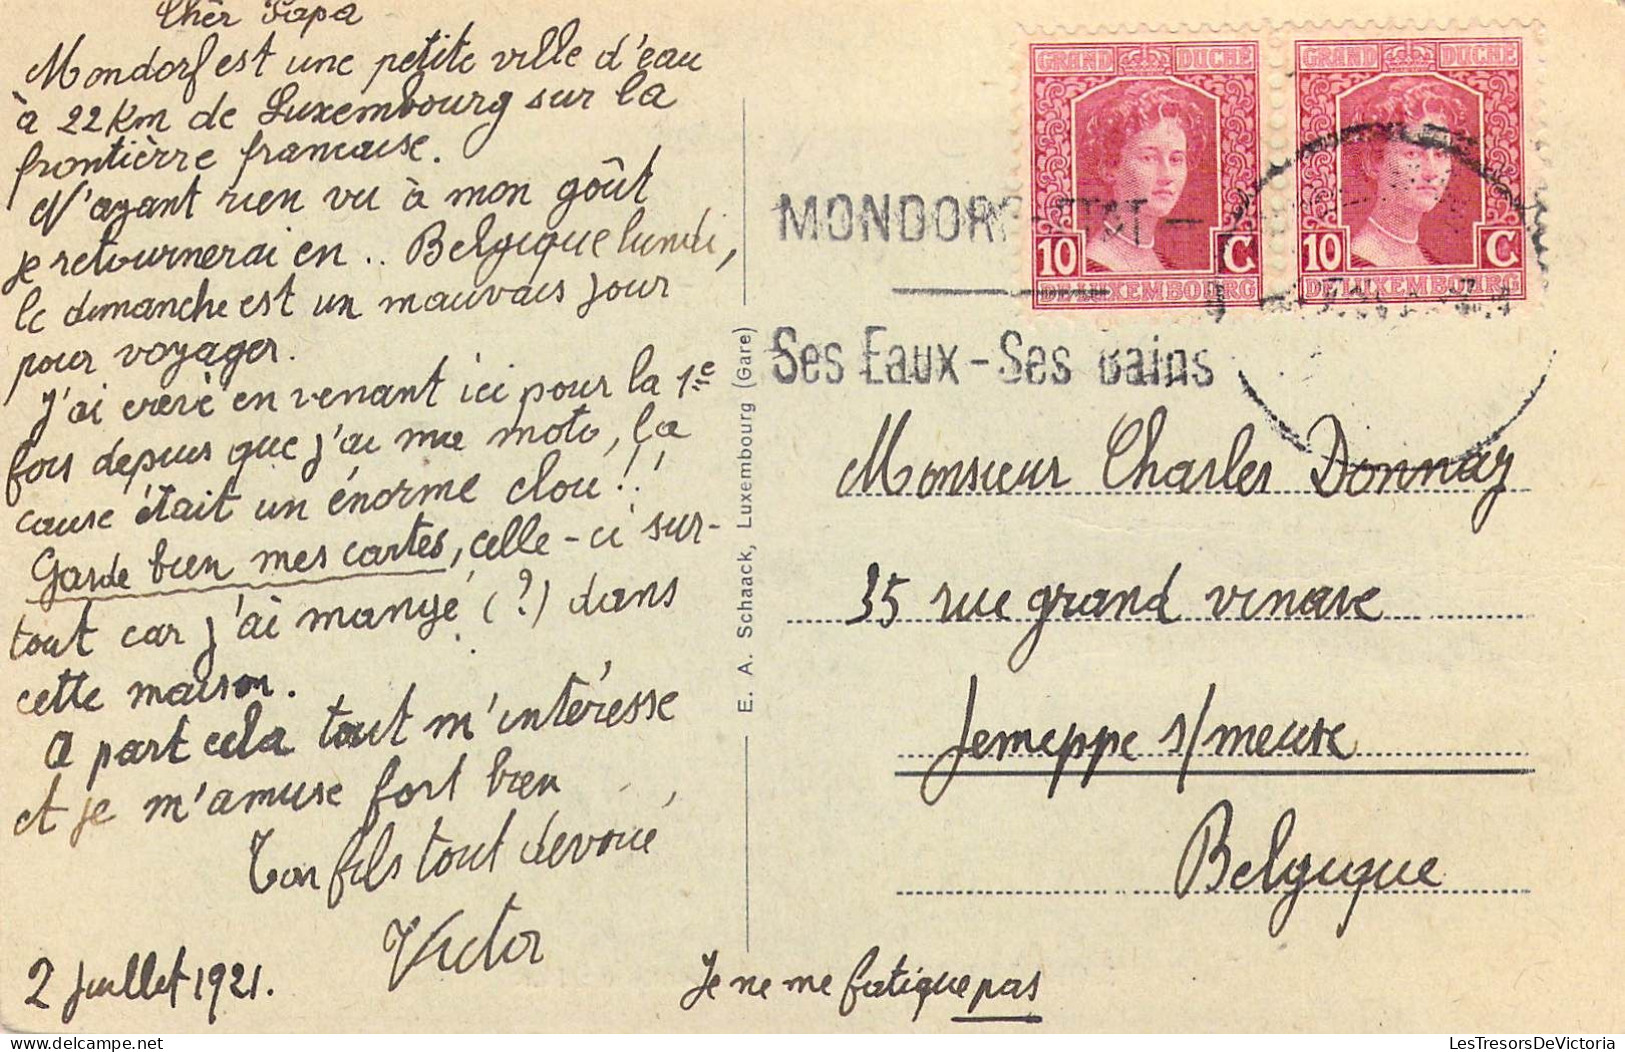 Chèr Papa
Mondorf est une petite ville d'eau
à 22 km de Luxembourg sur la
frontièrre francaise.
N'ayant rien vu à mon goût
je retournerai en .. Belgique lundi,
le dimanche est un mauvais jour
pour voyager.
J'ai crevé en venant ici pour la 1re
fois depuis que j'ai ma moto, la
cause était un énorme clou!!
Garde bien mes cartes, celle-ci sur-
tout car j'ai mangé (?) dans
cette maison.
A part cela tout m'intéresse
et je m'amuse fort bien
Ton fils tout dévoué
Victor
2 juillet 1921.
Je ne me fatigue pas
E. A. Schaack, Luxembourg (Gare)
GRAND DUCHÉ
10 C
DE LUXEMBOURG
GRAND DUCHÉ
10 C
DE LUXEMBOURG
MONDORF-ETAT-
Ses Eaux-Ses Bains
Monsieur Charles Donnay
35 rue grand vinave
Jemeppe s/meuse
Belgique
LesTresorsDeVictoria